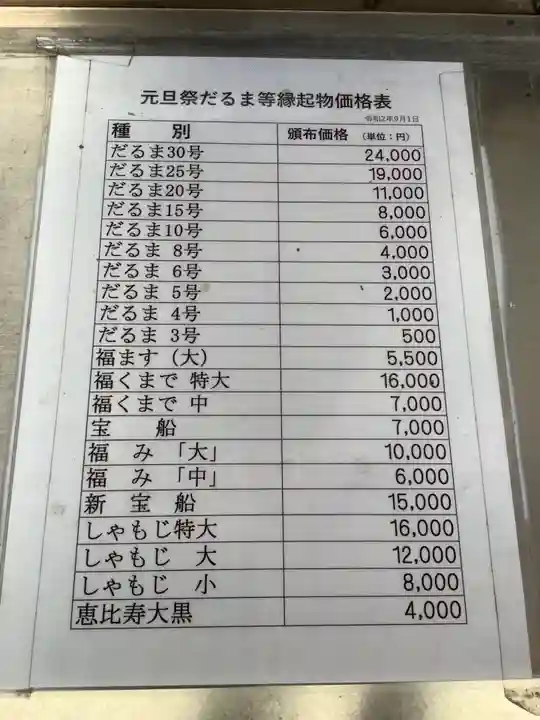 元旦祭だるま等縁起物価格表
令和2年9月1日
種　別　頒布価格　（単位：円）
だるま30号　24,000
だるま25号　19,000
だるま20号　11,000
だるま15号　8,000
だるま10号　6,000
だるま 8号　4,000
だるま 6号　3,000
だるま 5号　2,000
だるま 4号　1,000
だるま 3号　500
福ます（大）　5,500
福くまで 特大　16,000
福くまで 中　7,000
宝　船　7,000
福　み　「大」　10,000
福　み　「中」　6,000
新　宝　船　15,000
しゃもじ特大　16,000
しゃもじ　大　12,000
しゃもじ　小　8,000
恵比寿大黒　4,000